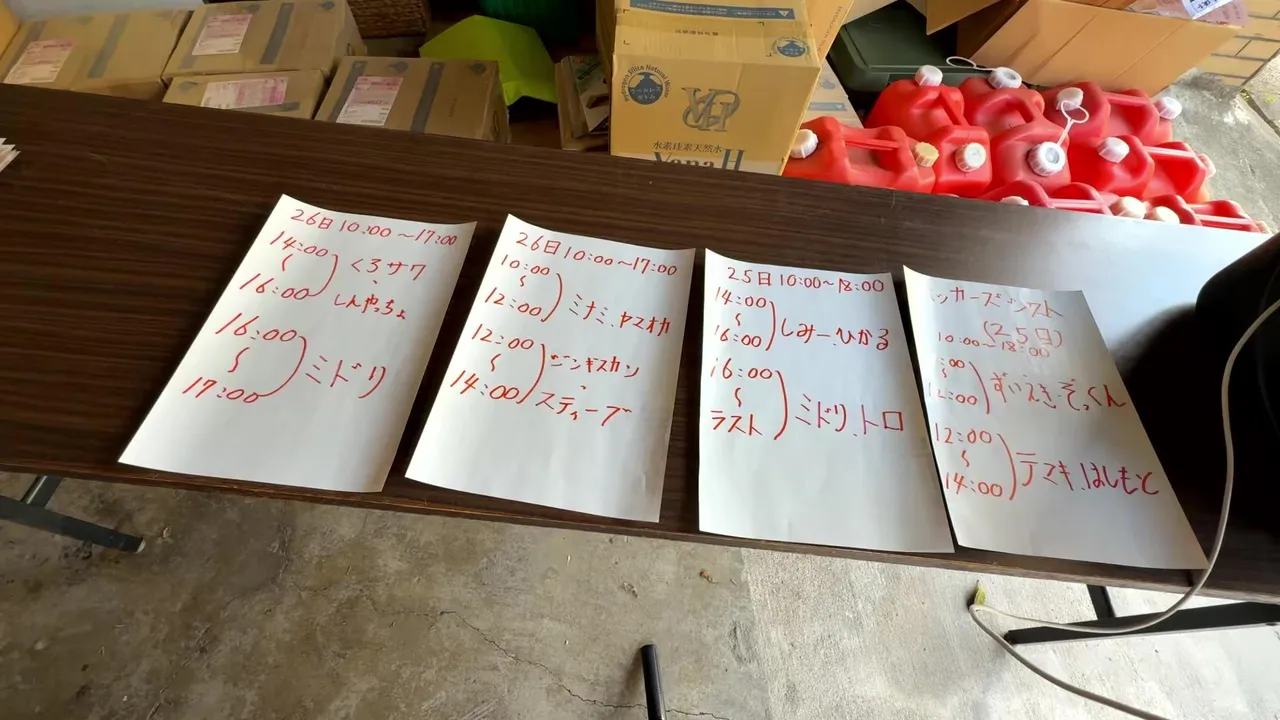 水素珪素天然水
VanaH
26日 10:00〜17:00
14:00
〜
16:00
くろサワ
、
しんやっちょ
16:00
〜
17:00
ミドリ
26日 10:00〜17:00
10:00
〜
12:00
ミナミ、ヤスオカ
12:00
〜
14:00
ジンギスカン
、
スティーブ
25日 10:00〜18:00
14:00
〜
16:00
しみー、ひかる
16:00
〜
ラスト
ミドリ、トロ
(25日)
10:00〜18:00
:00
〜
12:00
ずいえき・ぞっくん
12:00
〜
14:00
テマキ、はしもと